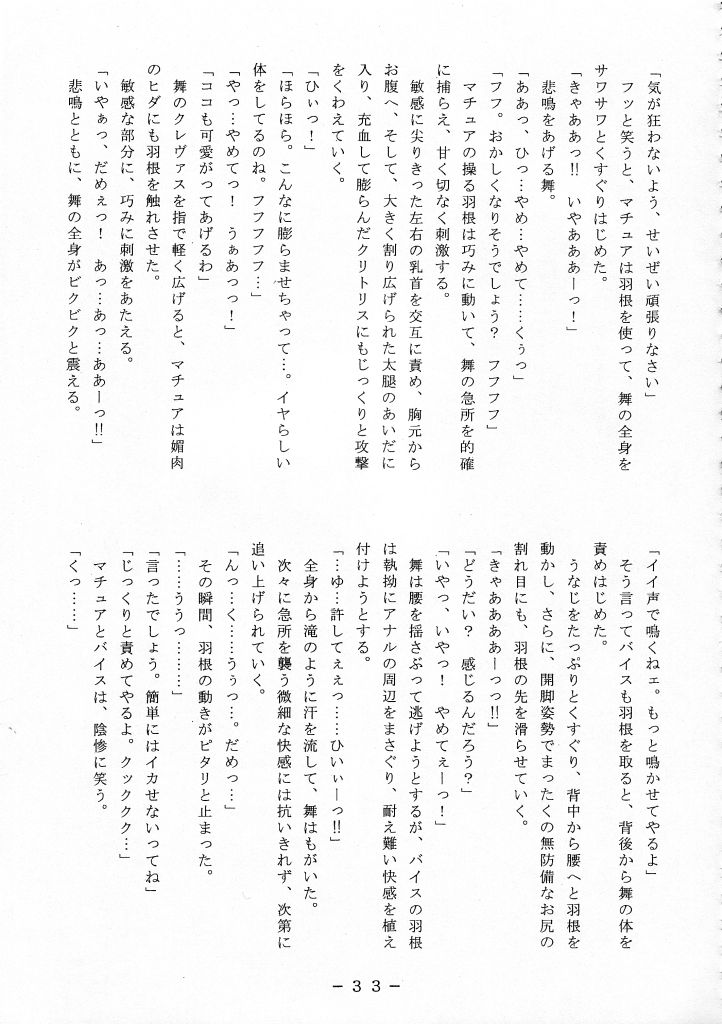 「気が狂わないよう、せいぜい頑張りなさい」
フッと笑うと、マチュアは羽根を使って、舞の全身を
サワサワとくすぐりはじめた。
「きゃああっ!! いやあああーっ！」
悲鳴をあげる舞。
「ああっ、ひっ…やめ…やめて……くぅっ」
「フフ。おかしくなりそうでしょう？ フフフフ」
マチュアの操る羽根は巧みに動いて、舞の急所を的確
に捕らえ、甘く切なく刺激する。
敏感に尖りきった左右の乳首を交互に責め、胸元から
お腹へ、そして、大きく割り広げられた太腿のあいだに
入り、充血して膨らんだクリトリスにもじっくりと攻撃
をくわえていく。
「ひぃっ！」
「ほらほら。こんなに膨らませちゃって…。イヤらしい
体をしてるのね。フフフフフ…」
「やっ…やめてっ！ うぁあっっ！」
「ココも可愛がってあげるわ」
舞のクレヴァスを指で軽く広げると、マチュアは媚肉
のヒダにも羽根を触れさせた。
敏感な部分に、巧みに刺激をあたえる。
「いやぁっ、だめぇっ！ あっ…あっ…ああーっ!!」
悲鳴とともに、舞の全身がビクビクと震える。
「イイ声で鳴くねェ。もっと鳴かせてやるよ」
そう言ってバイスも羽根を取ると、背後から舞の体を
責めはじめた。
うなじをたっぷりとくすぐり、背中から腰へと羽根を
動かし、さらに、開脚姿勢でまったくの無防備なお尻の
割れ目にも、羽根の先を滑らせていく。
「きゃああああーっっ!!」
「どうだい？ 感じるんだろう？」
「いやっ、いやっ！ やめてぇーっ！」
舞は腰を揺さぶって逃げようとするが、バイスの羽根
は執拗にアナルの周辺をまさぐり、耐え難い快感を植え
付けようとする。
「…ゆ…許してぇぇっ……ひいぃーっ!!」
全身から滝のように汗を流して、舞はもがいた。
次々に急所を襲う微細な快感には抗いきれず、次第に
追い上げられていく。
「んっ…く……うぅっ…。だめっ…」
その瞬間、羽根の動きがピタリと止まった。
「……ううっ………」
「言ったでしょう。簡単にはイカせないってね」
「じっくりと責めてやるよ。クックククク…」
マチュアとバイスは、陰惨に笑う。
「くっ……」
－３３－